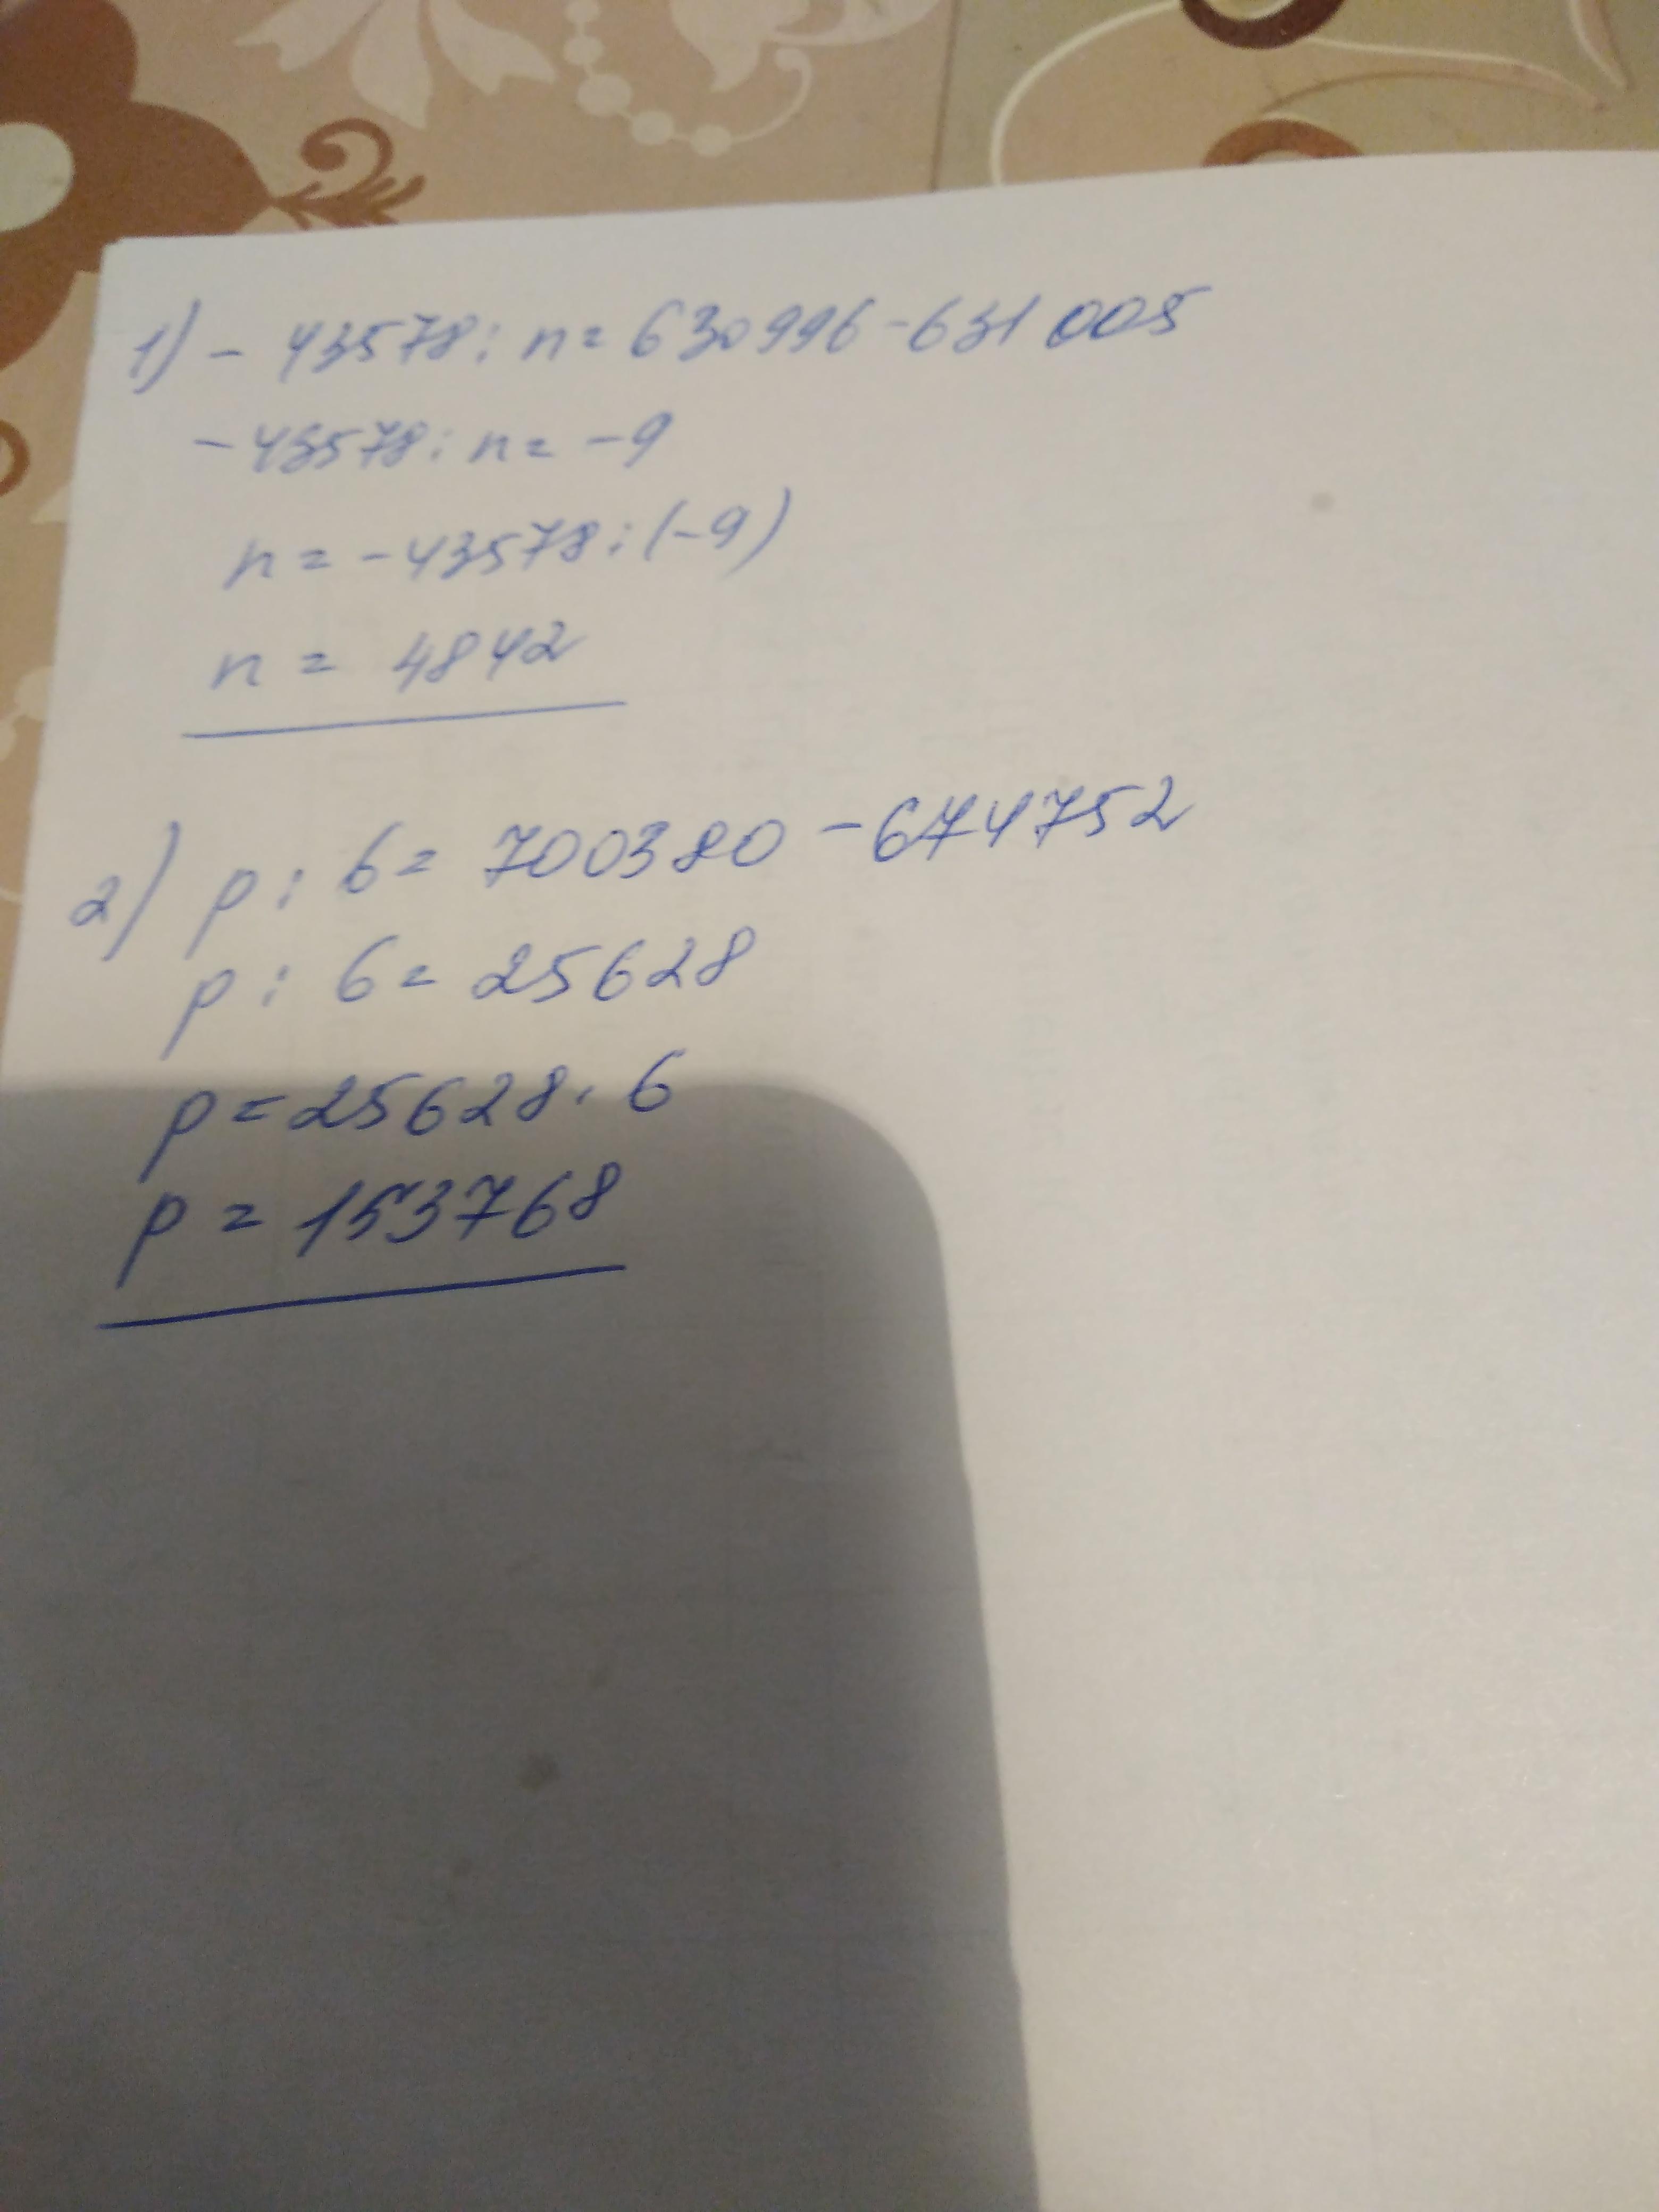 1) - 43578 : n = 630996 - 631005
- 43578 : n = -9
n = - 43578 : (-9)
n = 4842
2) p : 6 = 700380 - 674752
p : 6 = 25628
p = 25628 · 6
p = 153768